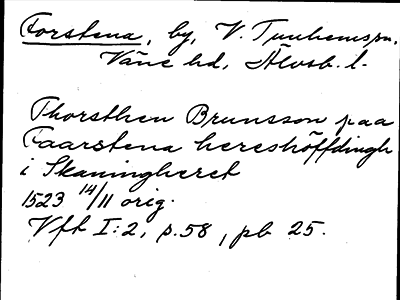 Forstena, by, V. Tunhems sn,
Väne hd, Älvsb. l.
Thorsthen Brunsson paa
Faarstena hereshöffdingh
i Skaningheret
1523 14/11 orig.
Vft I:2, s.58, pb 25.